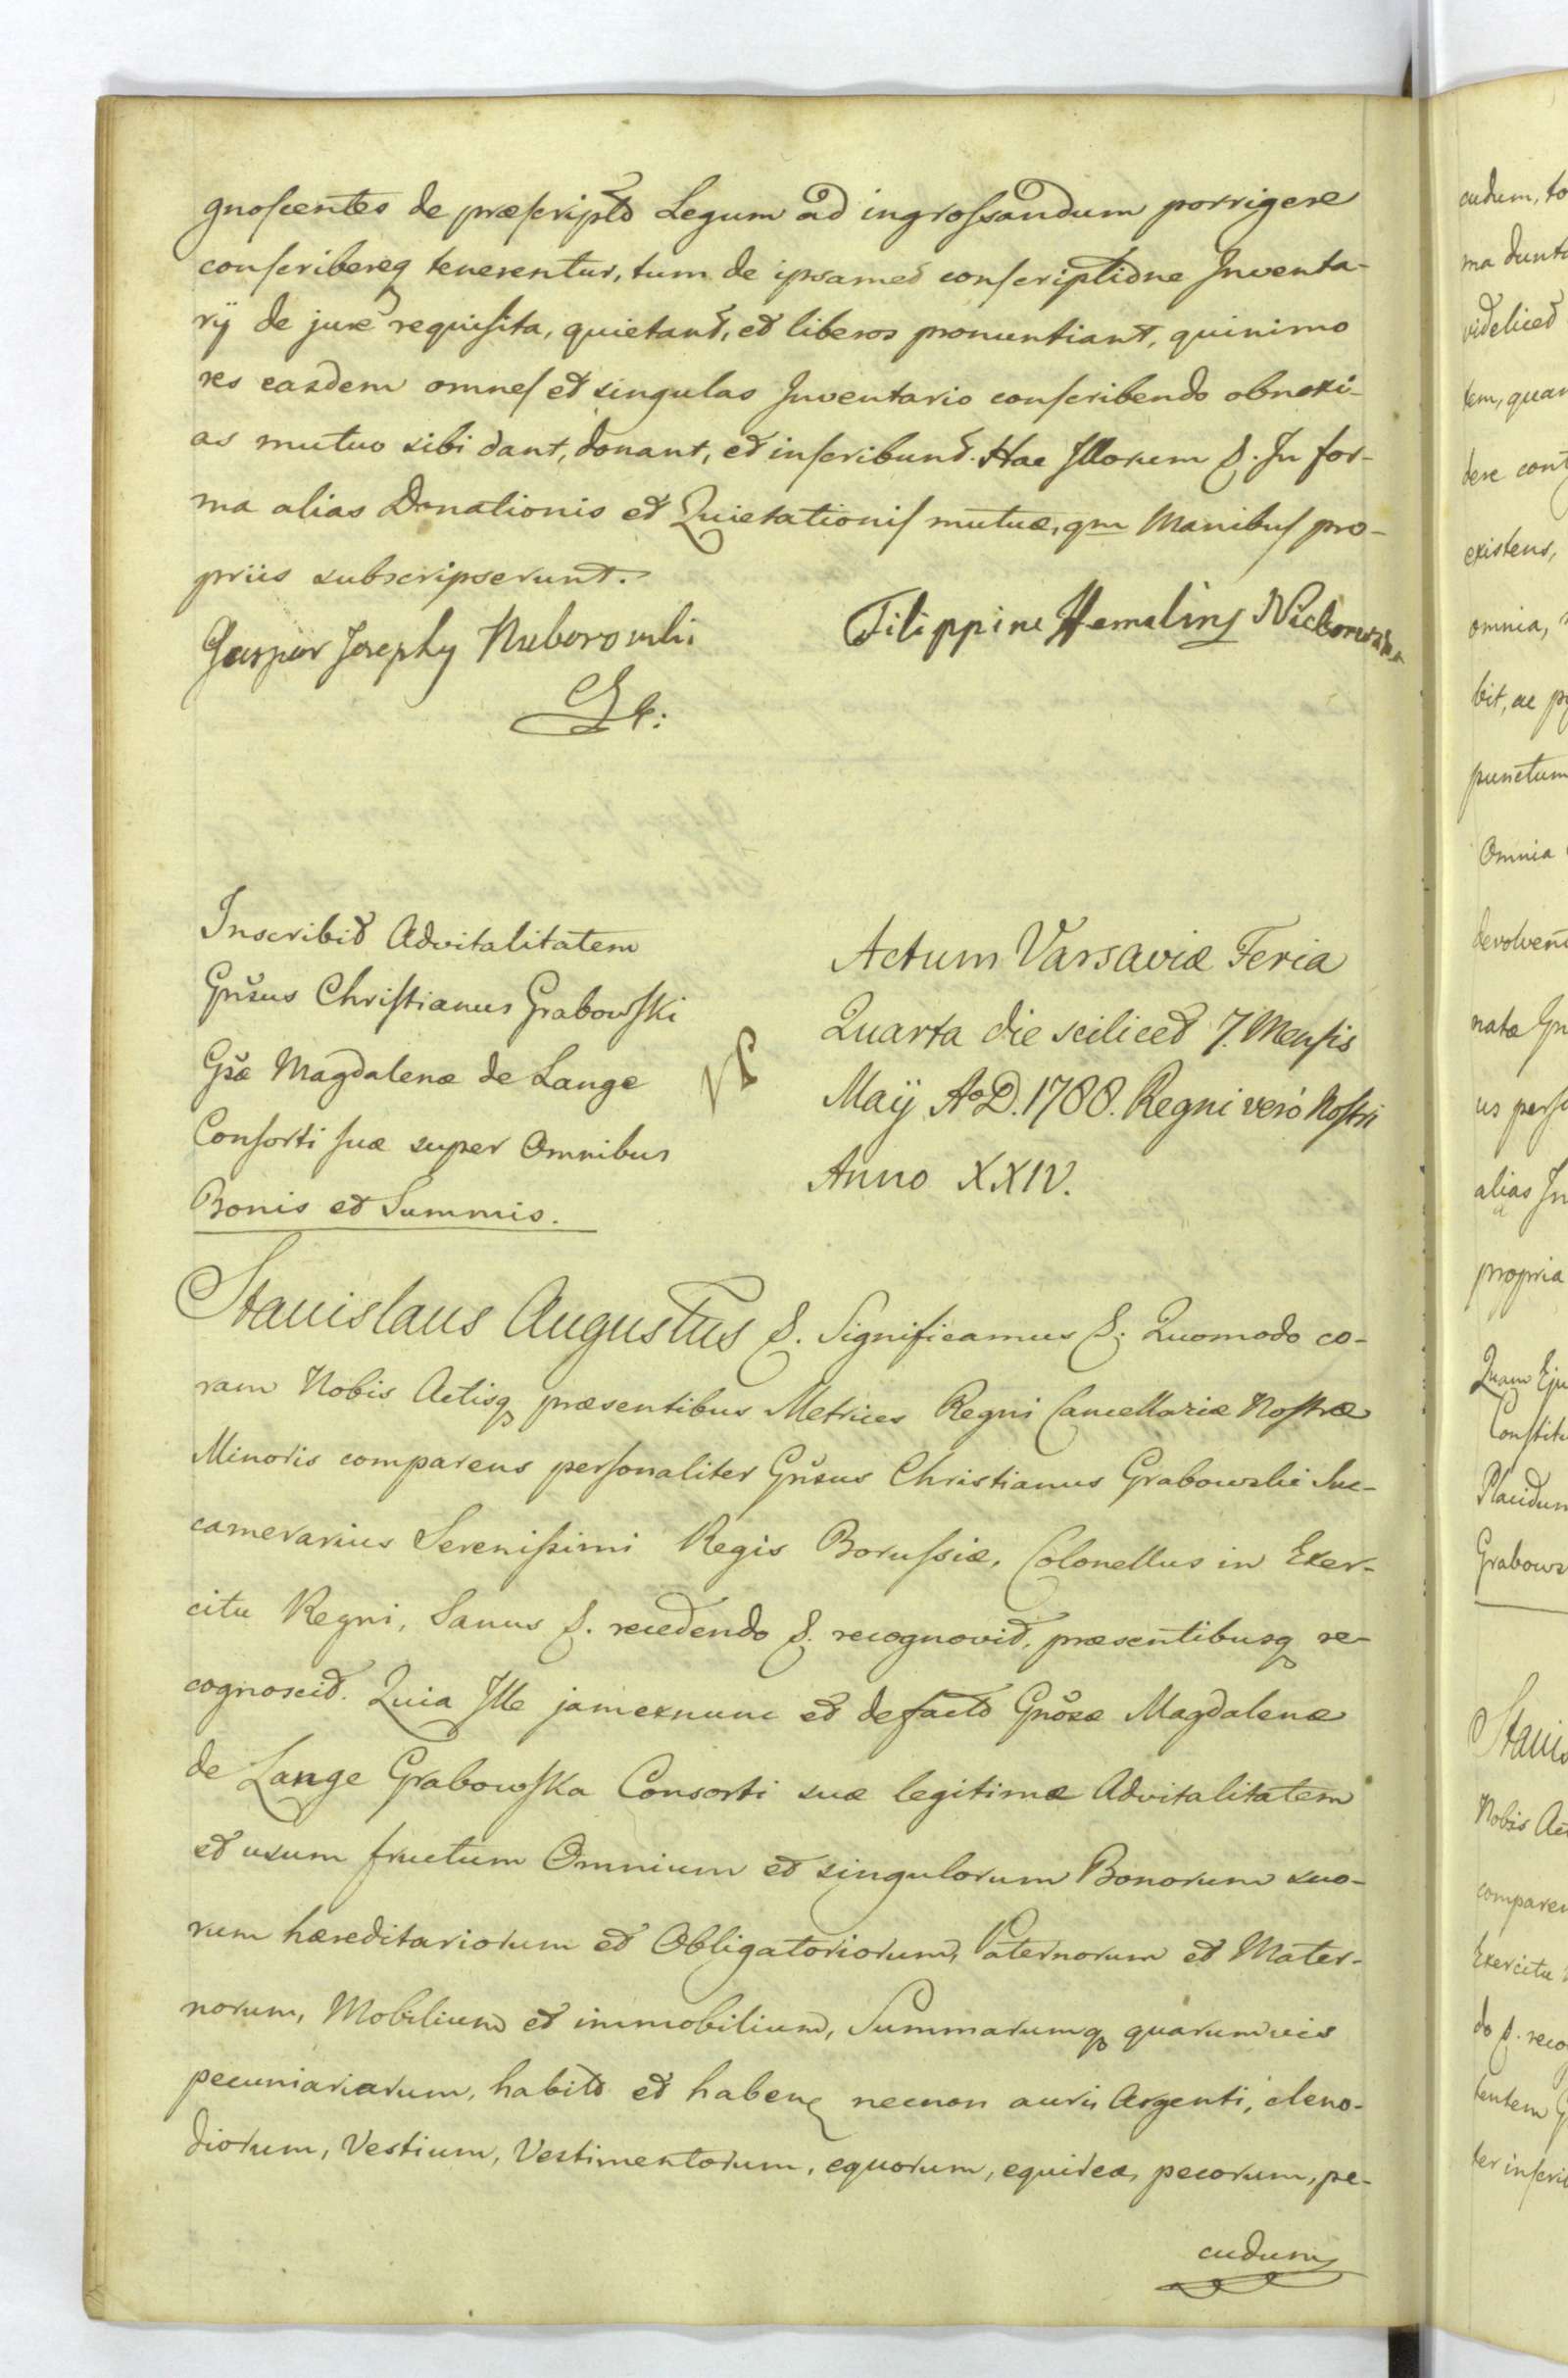 gnoscentes de præscripto Legum ad ingrossandum porrigere
conscribereq tenerentur, tum de ipsamet conscriptione Inventa-
rij de jure requisita, quietant, et liberos pronuntiant, quinimo
res easdem omnes et singulas Inventario conscribendo obnoxi-
as mutuo sibi dant, donant, et inscribunt. Hac Illorum &. In for-
ma alias Donationis et Quietationis mutuæ, qm Manibus pro-
priis subscripserunt.
Gaspar Josephy
Filippina
Inscribit Advitalitatem
Gnsus Christianus Grabowski
Gsæ Magdalenæ de Lange
Consorti suæ super Omnibus
Bonis et Summis.
Actum Varsaviæ Feria
Quarta die scilicet 7. Mensis
Maij Ao D. 1788. Regni veró Nostri
Anno XXIV.
Stanislaus Augustus &. Significamus &. Quomodo co-
ram Nobis Actisq præsentibus Metrices Regni Cancellariæ Nostræ
Minoris comparens personaliter Gnsus Christianus Grabowski Suc-
camerarius Serenissimi Regis Borussiæ, Colonellus in Exer-
citu Regni, Sanus &. recedendo &. recognovit, præsentibusq re-
cognoscit. Quia Ille jamexnunc et defacto Gnosæ Magdalenæ
de Lange Grabowska Consorti suæ legitimæ Advitalitatem
et usum fructum Omnium et singulorum Bonorum suo-
rum hæreditariorum et Obligatoriorum, Paternorum et Mater-
norum, Mobilium et immobilium, Summarumq quarumvis
pecuniariarum, habito et haben necnon auri Argenti, cleno-
diorum, Vestium, Vestimentorum, equorum, equirea, pecorum, pe-
cudum
cudum, to
videlicet
tem, quam
existens,
omnia,
bit, ac
punctum
Omnia
devolven
natæ Gn
us perso
alias In
propria
Quam Eju
Constitu
Placidum
Grabows
Stanis
Nobis Act
comparen
Exercitu
do &. reco
ter inscri